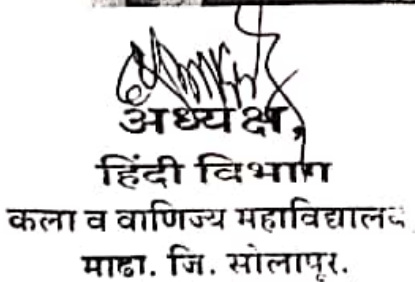 अध्यक्ष,
हिंदी विभाग
कला व वाणिज्य महाविद्यालय
माढा. जि. सोलापूर.